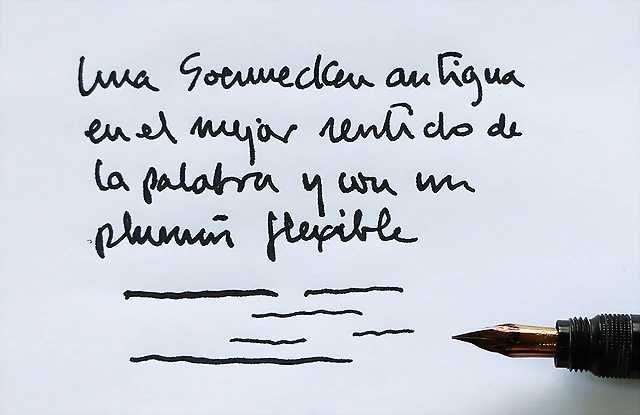 Una Soennecken antigua
en el mejor sentido de
la palabra y con un
plumín flexible